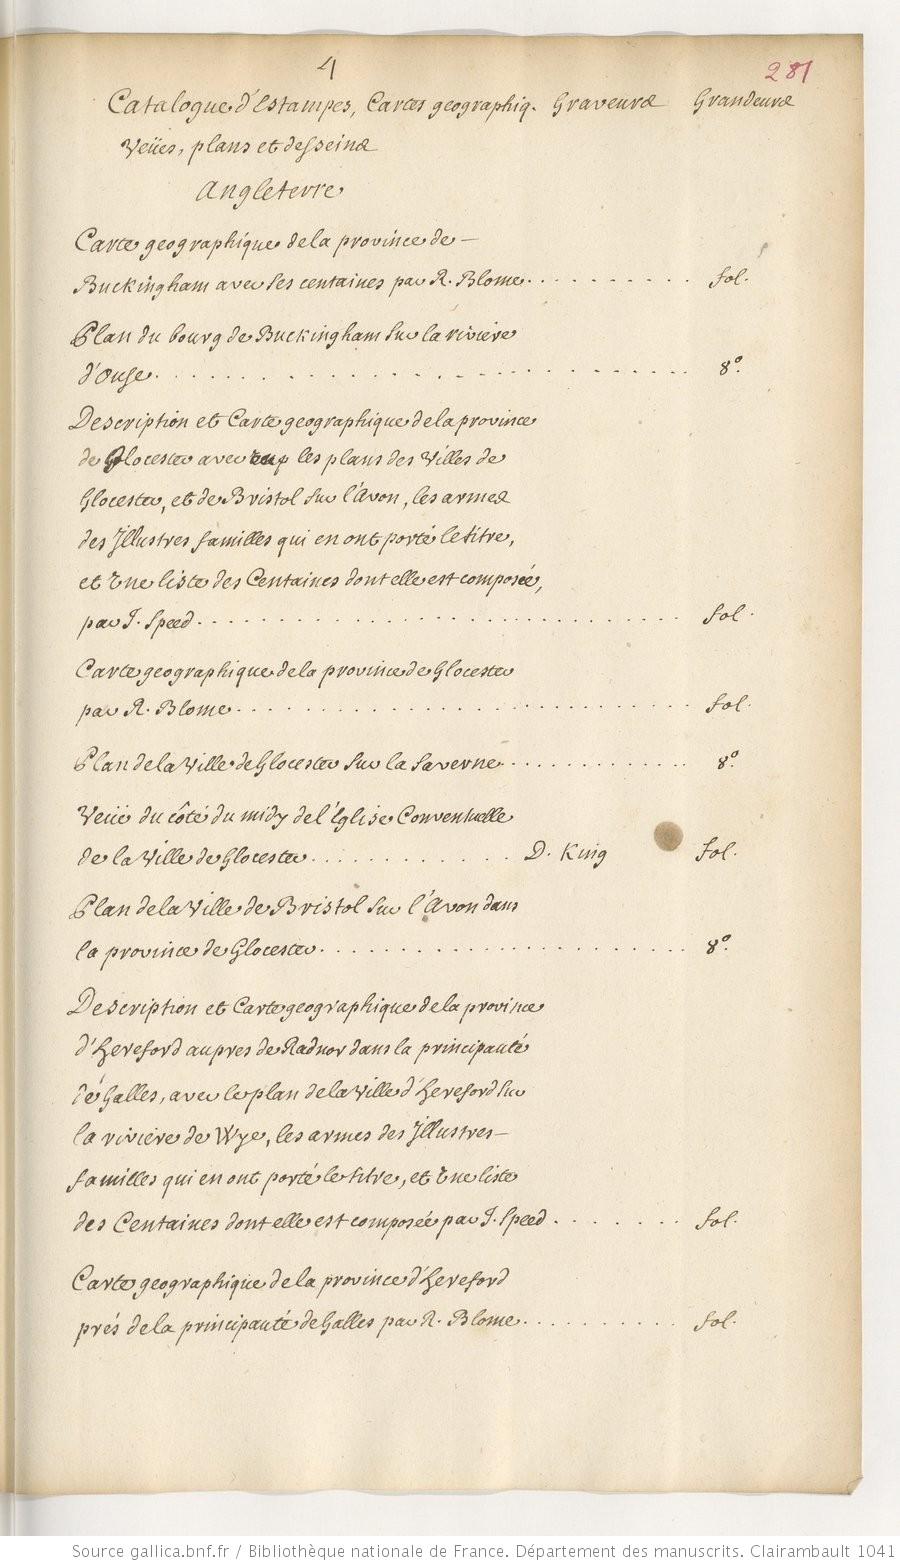 4
281
Catalogue d'Estampes, Cartes geographiq. Graveurs Grandeurs
Veües, plans et desseins
Angleterre
Carte geographique de la province de
Buckingham avec ses centaines par R. Blome . . . . . . . . . . fol.
Plan du bourg de Buckingham sur la riviere
d'Ouse . . . . . . . . . . . . . . . . . . . . 8º.
Description et Carte geographique de la province
de Glocester avec les plans des Villes de
Glocester, et de Bristol sur l'Avon, les armes
des Illustres familles qui en ont porté le titre,
et Une liste des Centaines dont elle est composée,
par J. Speed . . . . . . . . . . . . . . . . . . . . fol.
Carte geographique de la province de Glocester
par R. Blome . . . . . . . . . . . . . . . . . . . . fol.
Plan de la Ville de Glocester sur la Saverne . . . . . . . . . . 8º.
Veüe du côté du midy de l'Eglise Conventuelle
de la Ville de Glocester . . . . . . . . . . D. King fol.
Plan de la Ville de Bristol sur l'Avon dans
la province de Glocester . . . . . . . . . . . . . . . . 8º.
Description et Carte geographique de la province
d'Hereford aupres de Radnor dans la principauté
de Galles, avec le plan de la Ville d'Hereford sur
la riviere de Wye, les armes des Illustres
familles qui en ont porté le titre, et Une liste
des Centaines dont elle est composée par J. Speed . . . . . . fol.
Carte geographique de la province d'Hereford
prés de la principauté de Galles par R. Blome . . . . . . . . . . fol.
Source gallica.bnf.fr / Bibliothèque nationale de France. Département des manuscrits. Clairambault 1041